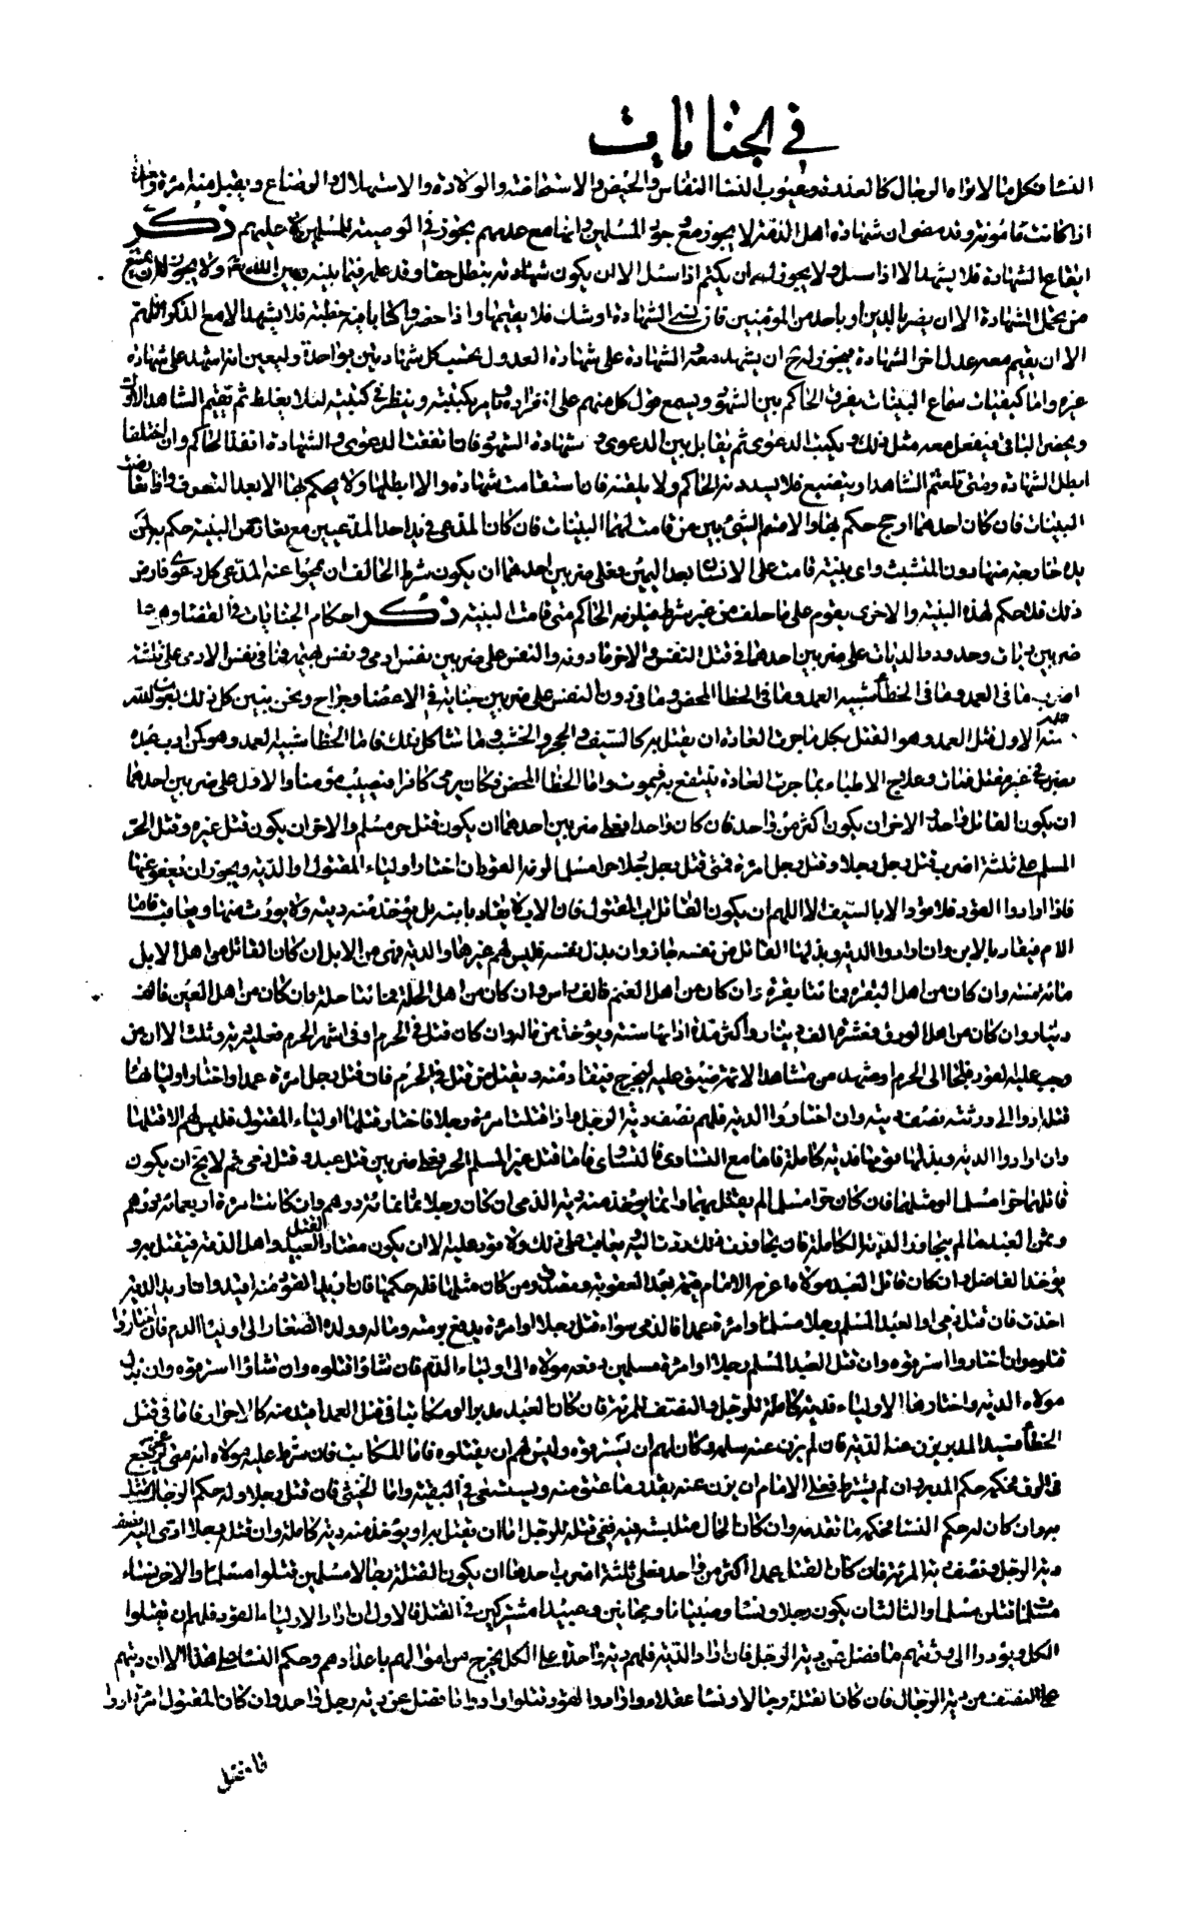 في الجنايات
النسا فكل ما لا يراه الرجال كالعذرة وعيوب النسا النفاس والحيض والاستحاضة والولادة والاستهلال والرضاع ويقبل منه امرة واحدة
اذا كانت مأمونة وقد مضى ان شهادة اهل الذمة لا يجوز مع المسلمين وانها مع عدمهم يجوز في الوصية للمسلمين لا عليهم ذكر
ايقاع الشهادة فلا يشهد الا اذا سئل ولا يجوز له ان يكتم اذا سئل الا ان يكون شهادته يبطل حقا وقد علم فيما بينه وبين الله ولا يجوز ان يمتنع
من تحمل الشهادة الا ان يضر بالدين او باحد من المؤمنين فان نسى الشهادة او شك فلا يقيمها واذا احضر كتابا فيه خطه فلا يشهد الا مع الذكر اللهم
الا ان يقيم معه عدل اخر الشهادة فيجوز له ان يشهد معه الشهادة على شهادة العدول يحسب كل شهادتين بواحدة وليعين انه اشهد على شهادة
غيره واما كيفيات سماع البينات يفرق الحاكم بين الشهود ويسمع قول كل منهم على انفراده ويأمر بكتبته وينظر في كتبته لئلا يغلط ثم يقيم الشاهد الاول
ويحضر الثاني فيفعل معه مثل ذلك ويكتب الدعوى ثم يقابل بين الدعوى وشهادة الشهود فان اتفقت الدعوى والشهادة انفذ الحاكم وان اختلفا
ابطل الشهادة ومتى تلعثم الشاهد او يتتعتع فلا يسدده الحاكم ولا يلقنه فان استقامت شهادته والا ابطلها ولا يحكم بها الا بعد التعرف واذا تعارضت
البينات فان كان احدهما ارجح حكم بها والا قسم الشيئ بين من قامت لهما البينات فان كان المدعى في يد احد المدعيين مع تعارض البينة حكم بها لمن
يده خارجة منها دون المتشبث واى بينة قامت على الانسان بعد اليمين فعلى ضربين احدهما ان يكون شرط الحالف ان يمحوا عنه المدعى كل دعوى فاذا رضى
ذلك فلا حكم لهذه البينة والاخرى يقوم على ما حلف من غير شرط فيلزمه الحاكم متى قامت البينة ذكر احكام الجنايات في القضا وهي
ضربين ديات وحدود والديات على ضربين احدهما في قتل النفس والاخر ما دونه والنفس على ضربين نفس ادمى ونفس بهيمة فما في نفس الادمى على ثلثة
اضرب ما في العمد وما في الخطأ شبيه العمد وما في الخطا المحض وما في دون النفس على ضربين جناية في الاعضا وجراح ونحن نبين كل ذلك بعون الله
الاول قتل العمد وهو القتل بكل ما جرت العادة ان يقتل به كالسيف والحجر والخشب وما شاكل ذلك فاما الخطا شبيه العمد وهو كمن ادب عبده
بضرب في غير مقتل فمات وعلاج الاطباء بما جرت العادة ينتفع به فيموت واما الخطا المحض فكان يرمى كافرا فيصيب مؤمنا والاول على ضربين احدهما
ان يكون القاتل واحدا والاخر ان يكون اكثر من واحد فان كان واحدا فعلى ضربين احدهما ان يكون قتل حر مسلم والاخر ان يكون قتل غيره وقتل الحر
المسلم على ثلثة اضرب قتل رجل رجلا وقتل رجل امرة فمتى قتل رجل رجلا حرا مسلما لزمه القود ان اختار اولياء المقتول او الدية ويجوز ان يعفو عنها
فاذا ارادوا القود فلا قود الا بالسيف الا اللهم ان يكون القاتل اب المقتول فان الاب لا يقاد بابنه بل يؤخذ منه دية ولا يورث منها ويعاقب فاما
الام فيقاد بالابن وان ارادوا الدية وبذلها القاتل من نفسه جاز وان بذل نفسه فليس لهم غيرها والدية فهى من الابل ان كان القاتل من اهل الابل
مائة مسنة وان كان من اهل البقر فمائتا بقرة وان كان من اهل الغنم فالف راس وان كان من اهل الحلة فمائتا حلة وان كان من اهل العين فالف
دينار وان كان من اهل الورق فعشرة الف دينار واكثر مدة اذائها سنة ويؤخذ من ماله وان كان قتل في الحرم او في اشهر الحرم فعليه دية وثلث الا ان من
وجب عليه القود فلجا الى الحرم او مشهد من مشاهد الائمة ضيق عليه ليخرج فيقاد منه ويقتل من قتل في الحرم فان قتل رجل امرة عمدا واختار اولياؤها
قتله ادوا الى ورثته نصف دية وان اختاروا الدية فلهم نصف دية الرجل واذا قتلت امرة رجلا فاختار قتلها اولياء المقتول فليس لهم الا قتلها
وان ارادوا الدية وبذلها قومها فدية كاملة فاما مع التساوى فالتساوى فاما قتل غير المسلم الحر فعلى ضربين قتل عبد وقتل ذمى ثم لا يخ ان يكون
قاتلهما حرا مسلما او مثلهما فان كان حرا مسلما لم يقتل بهما وانما يؤخذ منه دية الذمى ان كان رجلا ثمانمائة درهم وان كانت امرة اربعمائة درهم
وثمن العبد ما لم يتجاوز الدية الكاملة فان تجاوزت ذلك ردت اليه يعاقب على ذلك ولا قود عليه الا ان يكون معتادا القتل العبيد واهل الذمة فيقتل به و
يؤخذ الفاضل وان كان قاتل العبد مولاه اغرمه الامام قيمة بعد العقوبة ومن كان مثلهما فله حكمهما فان اريد القود منه اقيد وان اريد الدية
اخذت فان قتل ذمى او العبد المسلم رجلا مسلما او امرة عمدا فالذمى سواء قتل رجلا او امرة يدفع برمته وماله وولده الصغار الى اولياء الدم فان اختاروا
قتلوه وان اختاروا استرقوه وان قتل العبد المسلم رجلا او امرة مسلمين دفعه مولاه الى اولياء الدم فان شاؤا قتلوه وان شاؤا استرقوه وان بذل
مولاه الدية واختارها الاولياء فدية كاملة للرجل والنصف للمرئة فان كان العبد مدبرا او مكاتبا في قتل العمد اقيد منه كالاحرار فاما في قتل
الخطأ فسيد المدبر يزن عنه الدية فان لم يزن عنه سلمه وكان لهم ان يسترقوه وليس لهم ان يقتلوه فاما المكاتب فان شرط عليه مولاه انه متى عجز رجع
في الرق فحكمه حكم المدبر وان لم يشرط فعلى الامام ان يزن عنه بقدر ما عتق منه ويستسعى في البقية واما الخنثى فان قتل رجلا وله حكم الرجال قتل
به وان كان له حكم النسا فحكمه ما تقدم وان كان الحال ملتبسة فيه ففى قتله للرجل اما ان يقتل به او يؤخذ منه دية كاملة وان قتله رجل ادى اليه نصف
دية الرجل ونصف دية المرئة فان كان القتل عمدا اكثر من واحد فعلى ثلثة اضرب احدها ان يكون القتلة رجالا مسلمين قتلوا مسلما والاخر نساء
مسلمات قتلن مسلما والثالث ان يكون رجلا ونسا وصبيانا ومجانين وعبيدا مشتركين في القتل فالاول ان اراد الاولياء القود فلهم ان يقتلوا
الكل ويؤدوا الى ورثتهم ما فضل عن دية الرجل فان اراد الدية فلهم دية واحدة على الكل يخرج من اموالهم باعدادهم وحكم النسا على هذا الا ان ديتهم
على النصف من دية الرجال فان كان القتلة رجالا ونسا عقلا وارادوا القود قتلوا وادوا ما فضل عن دية رجل واحد وان كان المقتول امرة ادوا